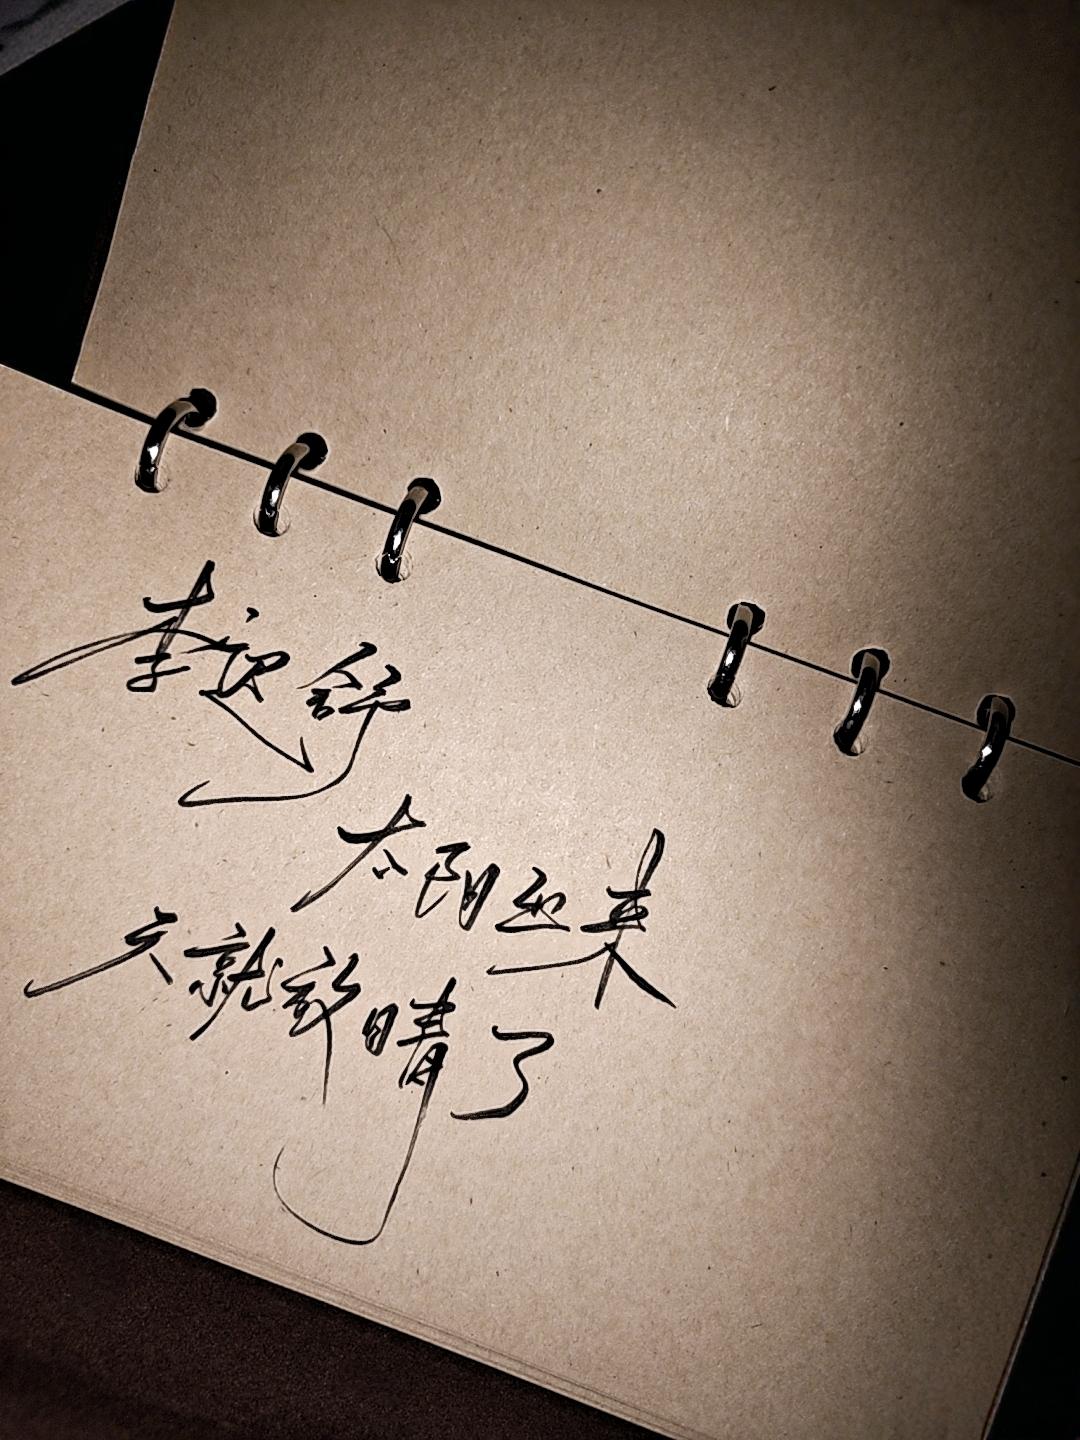 李迎舒
太阳出来
天就放晴了